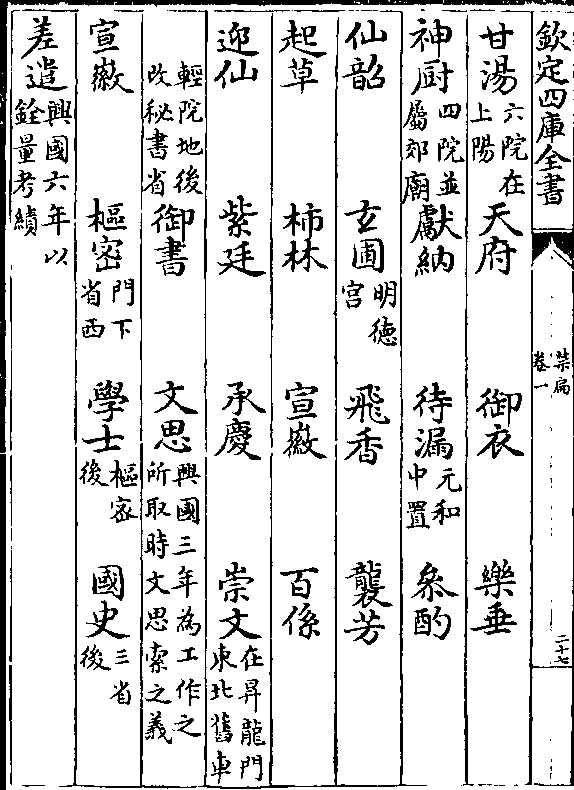 欽定四庫全書 禁扁 卷一 二十七
甘湯 六院在上陽 天府 御衣 樂垂
神厨 四院並屬郊廟 獻納 待漏 元和中置 叅酌
仙韶 玄圃 明德宮 飛香 襲芳
起草 柿林 宣徽 百係
迎仙 紫廷 承慶 崇文 在昇龍門東北舊車
輕院地後改秘書省 御書 文思 興國三年為工作之所取時文思索之義
宣徽 樞密 門下省西 學士 樞密後 國史 三省後
差遣 興國六年以銓量考績